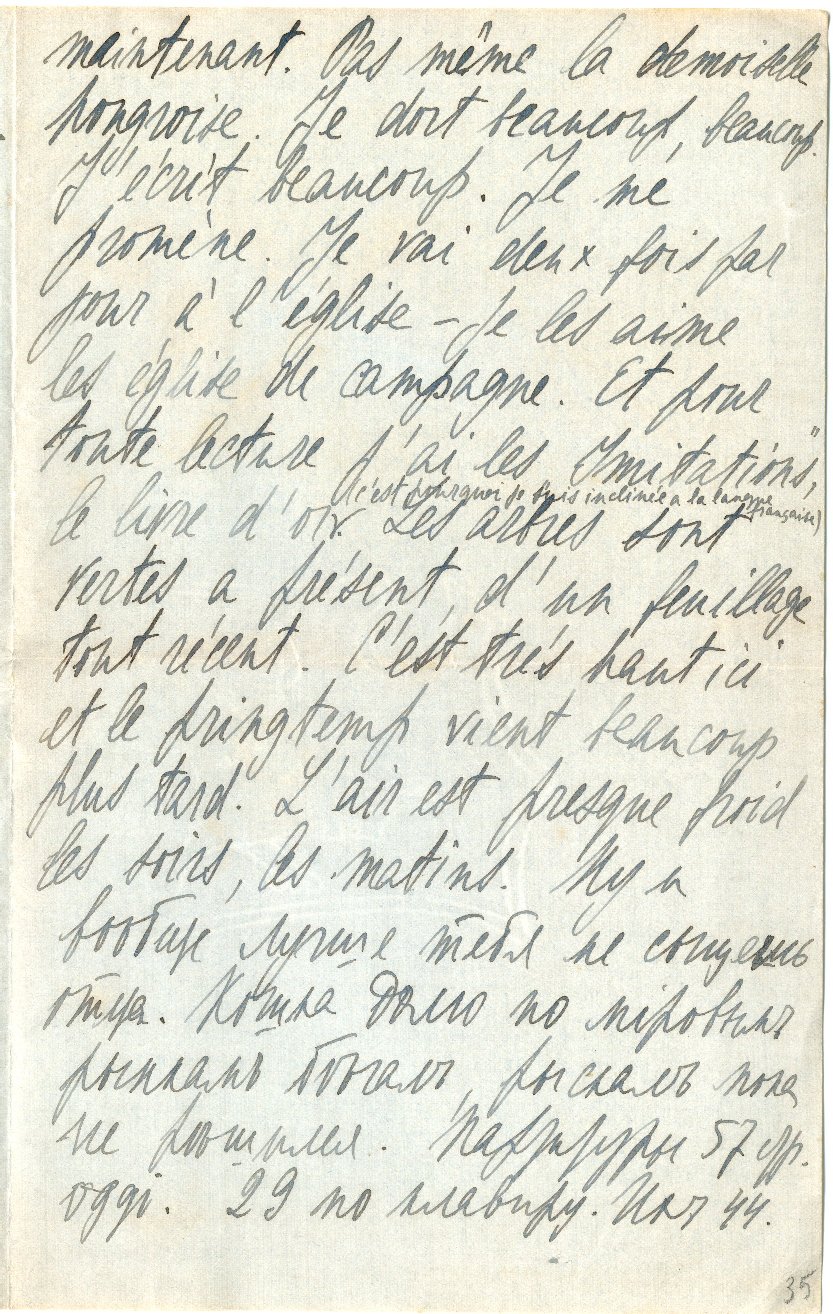 maintenant. Pas même la demoiselle
hongroise. Je dort beaucoup, beaucoup.
J'écrit beaucoup. Je me
promène. Je vai deux fois par
jour à l'église – Je les aime
les église de campagne. Et pour
toute lecture j'ai les Imitations",
(c'est pourquoi je suis inclinée a la langue française)
le livre d'oir. Les arbres sont
vertes a présent, d'un feuillage
tout récent. C'est trés haut ici
et le pringtemp vient beaucoup
plus tard. L'air est presque froid
les soirs, les matins. Ну и
вообще лучше тебя не сыщешь
отца. Кошка долго по міровымъ
рынкамъ бѣгалъ, рыскалъ пока
не рѣшился. 57 стр.
oggi. 29 по клавиру. Ихъ 44.
35